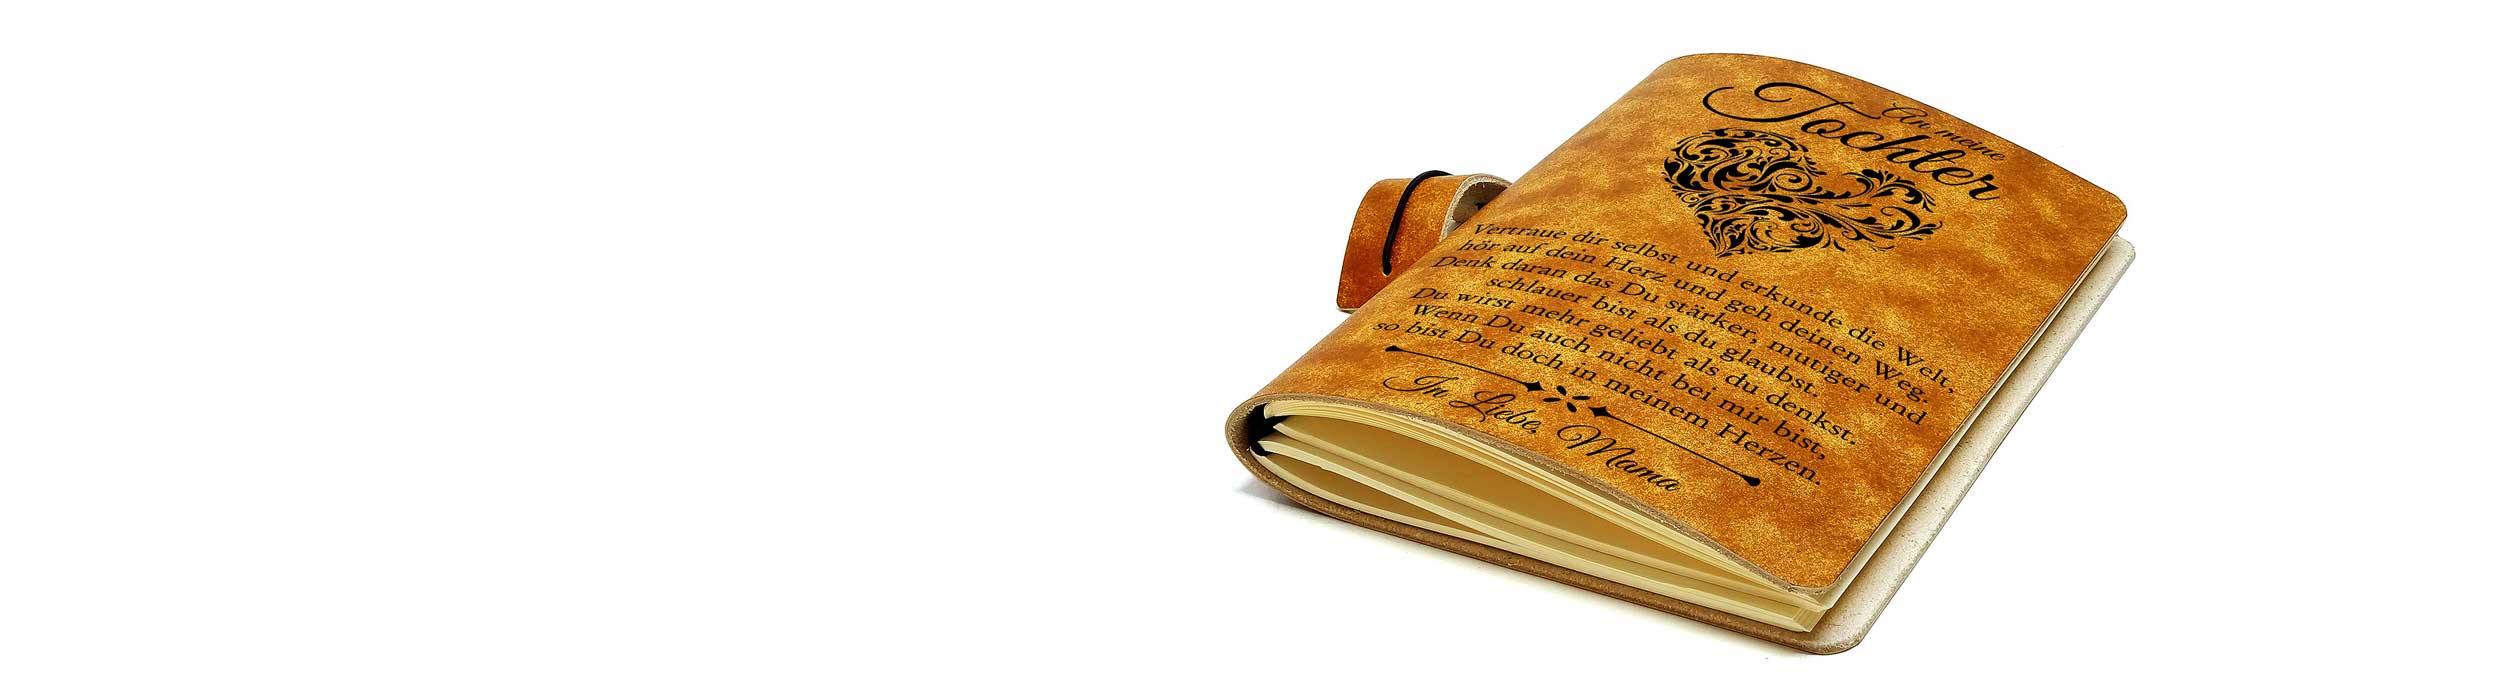 An meine
Tochter
Vertraue dir selbst und erkunde die Welt,
hör auf dein Herz und geh deinen Weg.
Denk daran das Du stärker, mutiger und
schlauer bist als du glaubst.
Du wirst mehr geliebt als du denkst.
Wenn Du auch nicht bei mir bist,
so bist Du doch in meinem Herzen.
In Liebe, Mama